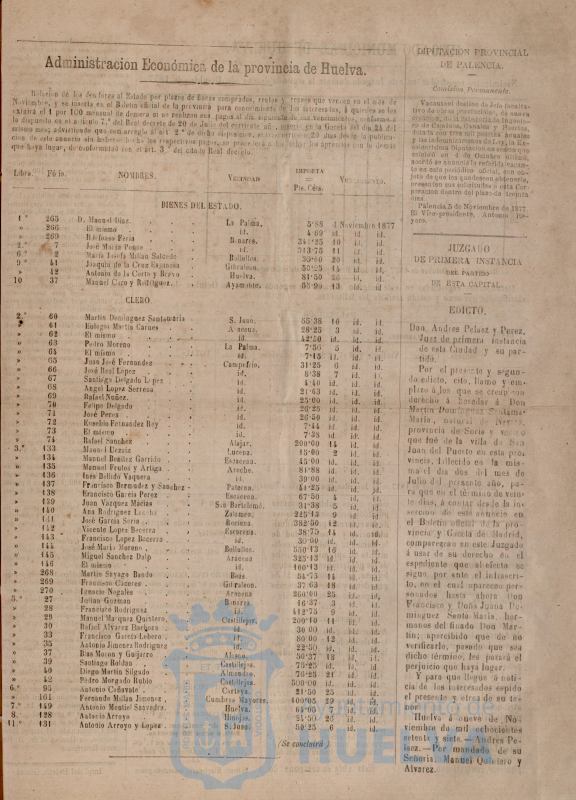 Administracion Económica de la provincia de Huelva.
Relacion de los deudores al Estado por plazos de fincas comprados, rentas y censos que vencen en el mes de
Noviembre, y se inserta en el Boletin oficial de la provincia para conocimiento de los interesados, á quienes se les
exigirá el 1 por 100 mensual de demora si no realizan sus pagos al dia siguiente de sus vencimientos, conforme á
lo dispuesto en el artículo 7.° del Real decreto de 20 de Junio del corriente año
mismo mes; advirtiendo que con arreglo al art. 2.° de dicha
cion de este anuncio sin haber hecho los respectivos pagos, se procederá
que haya lugar, de conformidad con el art. 3.° del citado Real decreto.
Libro. Fólio. NOMBRES. VECINDAD IMPORTE Pts. Cénts. VENCIMIENTO.
BIENES DEL ESTADO.
1.° 265 D. Manuel Diaz. La Palma. 5'88 4 Noviembre 1877
» 266 El mismo id. 4'69 id. id.
» 269 Ildefonso Feria id. id.
2.° 7 José María Ponce Bonares. 10 id. id.
6.° 2 María Josefa Millan Salcedo Bollullos. 20 id. id.
9.° 41 Joaquin de la Cruz Española Gibraleon. 50'25 14 id. id.
» 42 Antonio de la Corte y Bravo Huelva. 81'50 id. id.
10 37 Manuel Caro y Rodriguez. Ayamonte. 13 id. id.
CLERO.
2.° 60 Martin Dominguez Santamaria S. Juan. 65'38 10 id. id.
» 61 Eulogio Martin Carnes Aracena. 28'25 3 id. id.
» 62 El mismo id. 42'50 id. id.
» 63 Pedro Moreno La Palma. 7'56 5 id. id.
» 64 El mismo id. 7'15 id. id. id.
» 65 Juan José Fernandez Campofrio. 31'25 6 id. id.
» 66 José Real Lopez id. 8'38 7 id. id.
» 67 Santiago Delgado Lopez id. 4'40 id. id.
» 68 Angel Lopez Serrano id. 21'63 id. id.
» 69 Rafael Nuñez. id. 25'00 id. id.
» 70 Felipe Delgado id. 26'25 id. id.
» 71 José Perez id. 26'50 id. id.
» 72 Eusebio Fernandez Rey id. 7'44 id. id.
» 73 El mismo id. 7'38 id. id.
» 74 Rafael Sanchez Alajar. 200'00 14 id. id.
3.° 133 Manuel Uceriz Lucena. 15'00 2 id. id.
» 134 Manuel Benitez Garrido Escacena. 45'00 id. id.
» 135 Manuel Frutos y Artiga Aroche. 81'88 id. id.
» 136 Ines Bellido Vaquera id. 39'00 id. id.
» 137 Francisco Bermudez y Sanchez Paterna. 41'25 id. id.
» 138 Francisco Garcia Perez Escacena. 67'50 4 id. id.
» 139 Juan Vazquez Macias San Bartolomé. 31'38 5 id. id.
» 140 Ana Rodriguez Zalamea. 225'13 9 id. id.
» 141 José Garcia Soria Rociana. 382'50 12 id. id.
» 142 Vicente Lopez Becerra Escacena. 38'75 14 id. id.
» 143 Francisco Lopez Becerra id. 30'00 id. id.
» 144 José María Moreno Bollullos. 550'13 16 id. id.
» 145 Miguel Sanchez Dalp Aracena 325'13 id. id.
» 146 El mismo id. 100'13 id. id.
» 268 Martin Sayago Bando Beas. 54'75 14 id. id.
» 269 Francisco Cáceres Gibraleon. 37'63 18 id. id.
» 270 Ignacio Nogales Aracena 260'00 25 id. id.
5.° 27 Julian Guzman Bonares 16'37 3 id. id.
» 28 Francisco Rodriguez id. 112'75 9 id. id.
» 29 Manuel Marquez Quintero Castillejos. 200'40 11 id. id.
» 30 Rafael Alvarez Barbosa id. 30'00 id. id.
» 33 Francisco García Lobero id. 80'00 12 id. id.
» 35 Antonio Jimenez Rodriguez id. 22'50 id. id.
» 37 Blas Moron y Guijarro Alosno. 50'37 18 id. id.
» 39 Santiago Roldan Castillejos. 75'25 id. id.
» 40 Diego Martin Silgado Almendro. 76'25 21 id. id.
» 42 Pedro Morgado Rubio Castillejos. 500'00 id. id.
6.° 95 Antonio Cañavate Cartaya. 21'50 25 id. id.
» 161 Fernando Millan Jimenez Cumbres Mayores. 100'05 29 id. id.
7.° 149 Antonio Montiel Saavedra Huelva. 6 id. id.
8.° 128 Antonio Arroyo Hinojos. 21'50 26 id. id.
11.° 131 Antonio Arroyo y Lopez S. Juan. 50'25 6 id. id.
(Se concluirá)
DIPUTACION PROVINCIAL
DE PALENCIA.
Comision Permanente.
Vacante el destino de Jefe facultativo
de obras provinciales,
de Caminos, Canales y Puertos,
dotada con tres mil pesetas anuales
y las indemnizaciones de Ley, la Excelentísima
Diputacion en sesion que
celebró en 4 de Octubre último,
acordó se anuncie la referida vacante
en este periódico oficial, con objeto
de que los que deseen obtenerla,
presenten sus solicitudes á esta Corporacion
dentro del plazo de treinta
dias.
Palencia 5 de Noviembre de 1877.
El Vice-presidente, Antonio
JUZGADO
DE PRIMERA INSTANCIA
DEL PARTIDO
DE ESTA CAPITAL.
EDICTO.
Don Andres Pelaez y Perez,
Juez de primera instancia
de esta Ciudad y su partido.
Por el presente y segundo
edicto, cito, llamo y emplazo
á los que se crean con
derecho á heredar á Don
Martin Dominguez Santa
María, natural de
provincia de Soria y vecino
que fué de la villa de San
Juan del Puerto en esta provincia,
fallecido en la misma
el dia dos del mes de
Julio del presente año, para
que en el término de veinte
dias, á contar desde la insercion
de este anuncio en
el Boletin oficial de la provincia
y Gaceta de Madrid,
comparezcan en este Juzgado
á usar de su derecho en el
expediente que al efecto se
sigue por ante el infrascrito,
en el cual aparecen personados
hasta ahora Don
Francisco y Doña Juana Dominguez
Santa María, hermanos
del finado Don Martin;
apercibido que de no
verificarlo, pasado que sea
dicho término, les parará el
perjuicio que haya lugar.
Y para que llegue á noticia
de los interesados expido
el presente y otros de su tenor.
Huelva á nueve de Noviembre
de mil ochocientos
setenta y siete.—Andres Pelaez.—Por
mandado de su
Señoría, Manuel Quintero y
Alvarez.
Ayuntamiento de
HUELVA